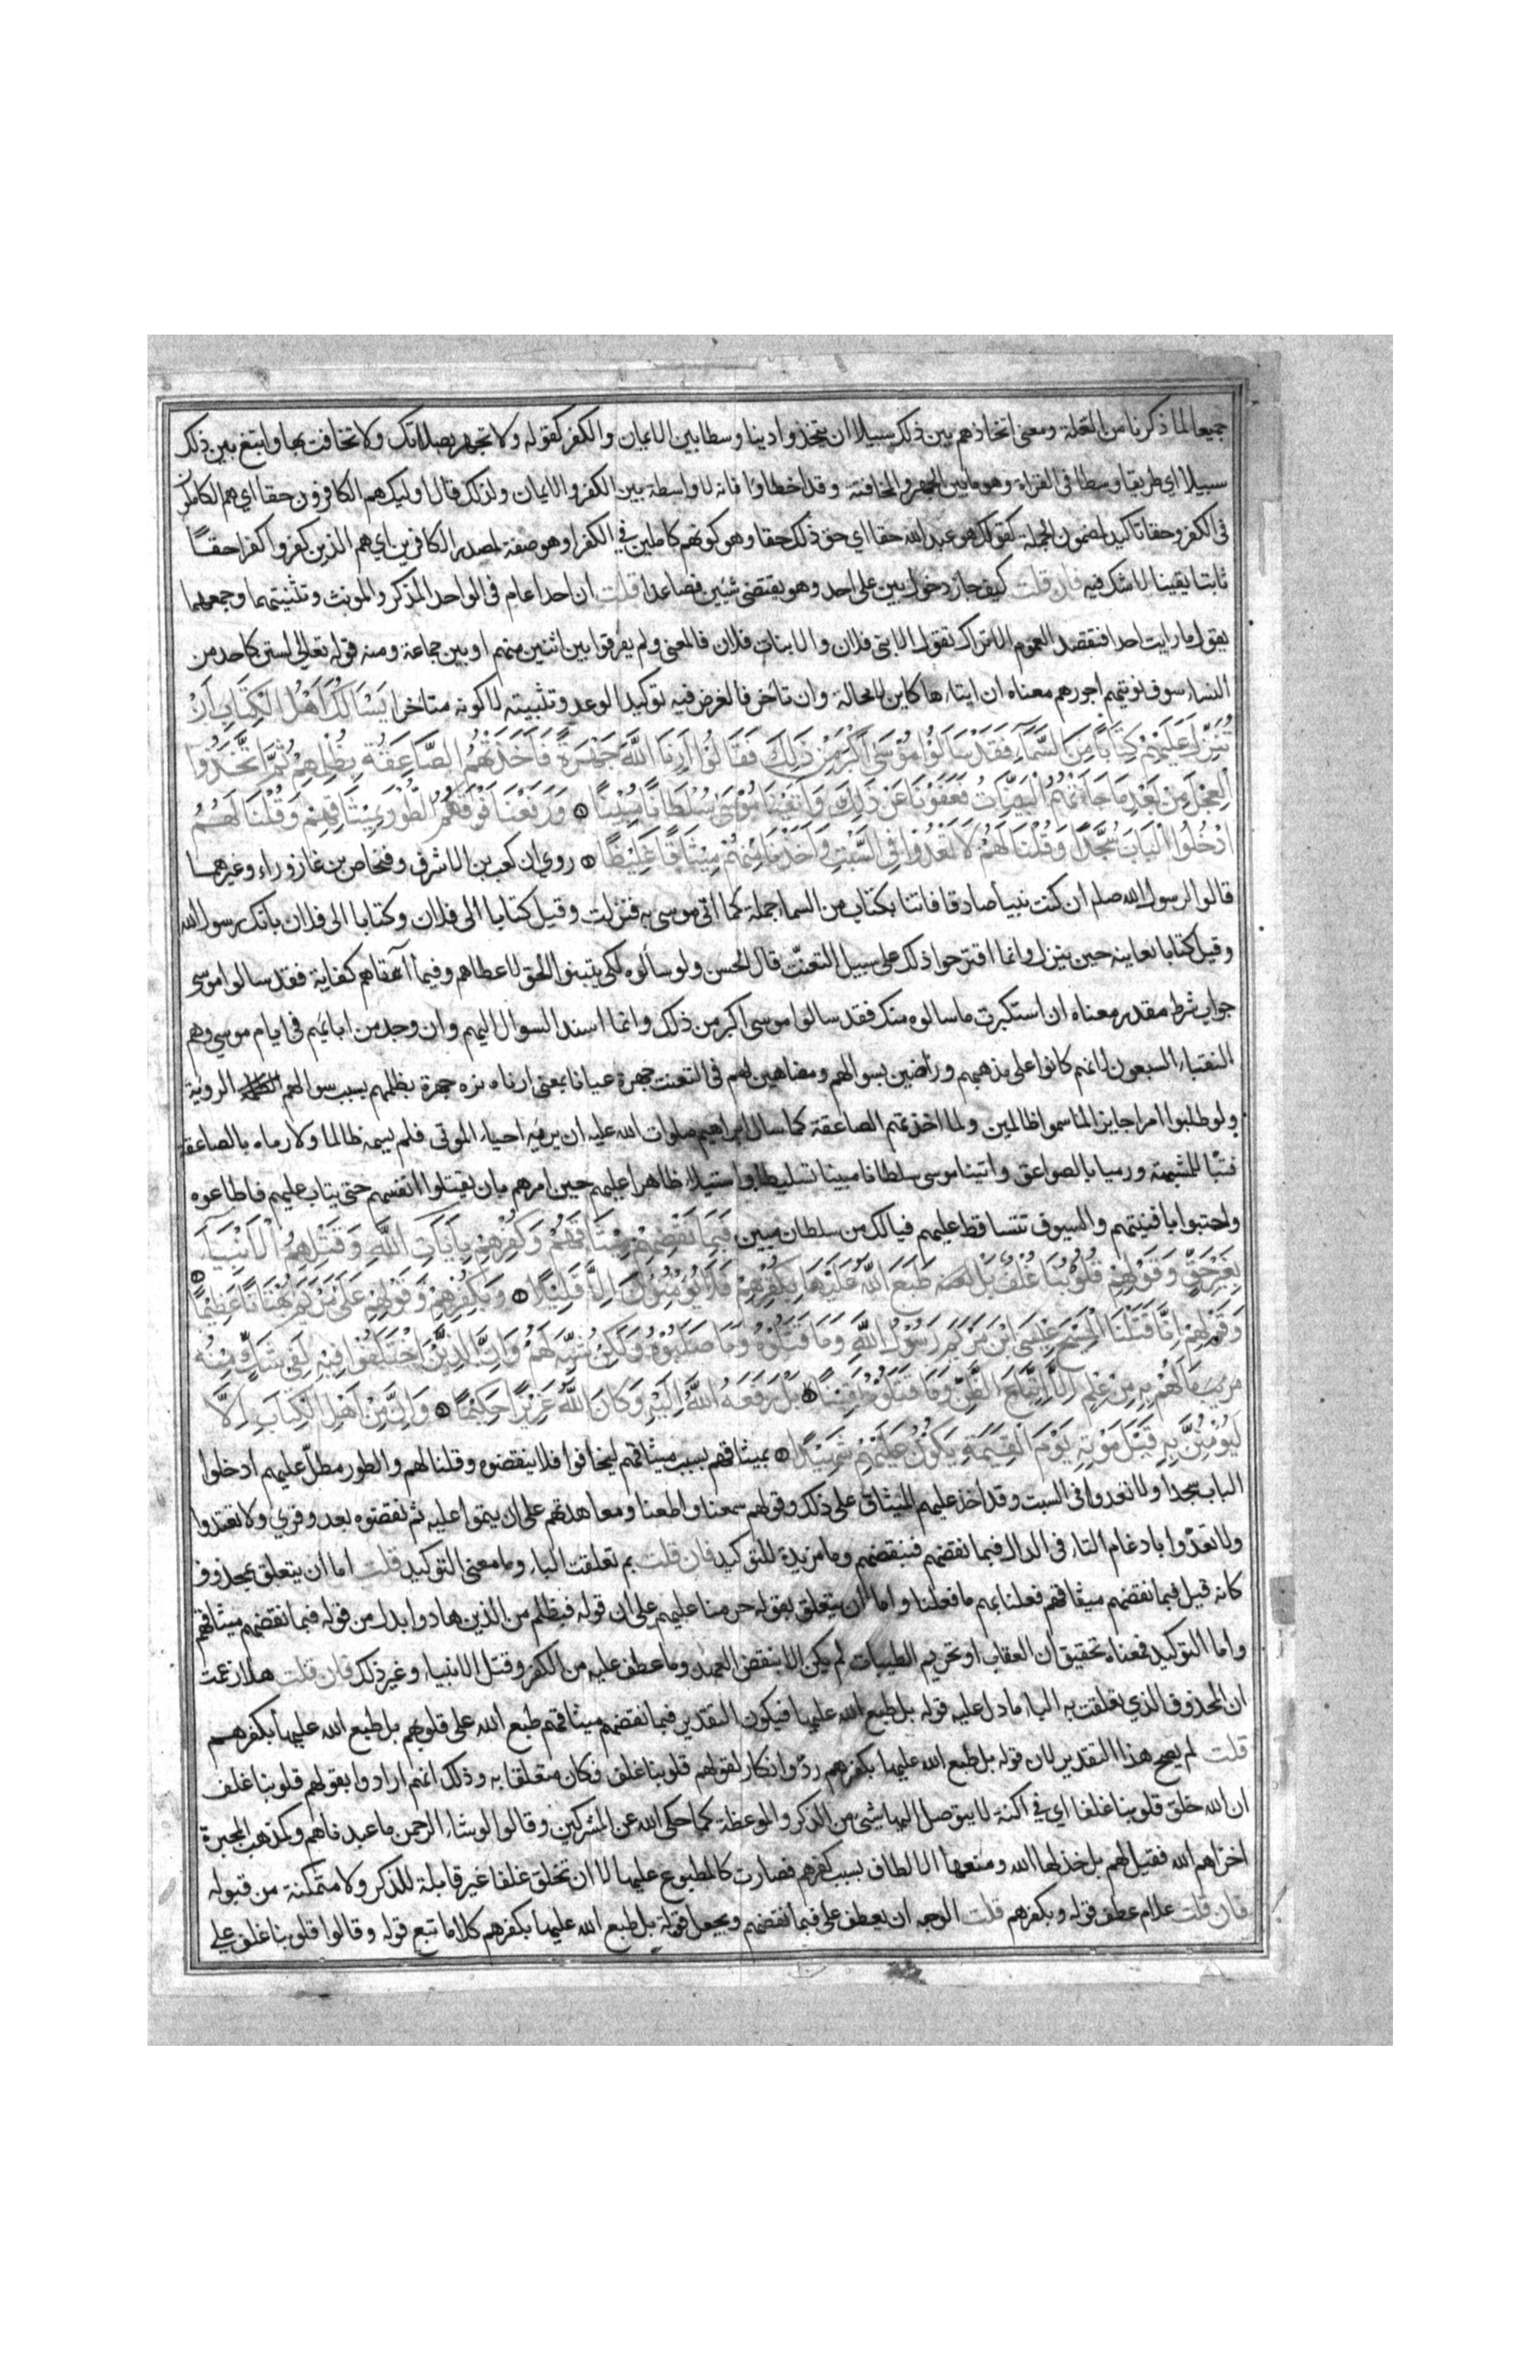 جميعا لما ذكرنا من العلة ومعنى اتخاذهم بين ذلك سبيلا ان يتخذوا دينا وسطا بين الايمان والكفر كقوله ولا تجهر بصلاتك ولا تخافت بها وابتغ بين ذلك
سبيلا اي طريقا وسطا فى القراة وهو ما بين الجهر والمخافتة وقد اخطاوا فانه لا واسطة بين الكفر والايمان ولذلك قال اوليك هم الكافرون حقا اي هم الكاملون
فى الكفر وحقا تاكيد لمضمون الجملة كقولك هو عبد الله حقا اي حق ذلك حقا وهو كونهم كاملين في الكفر او هو صفة لمصدر الكافرين اي هم الذين كفروا كفرا حقا
ثابتا يقينا لا شك فيه فان قلت كيف جاز دخول بين على احد وهو يقتضى شيئين فصاعدا قلت ان احدا عام فى الواحد المذكر والمونث وتثنيتهما وجمعهما
يقول ما رايت احدا فتقصد العموم الا تراك تقول الا بنى فلان والا بنات فلان فالمعنى ولم يفرقوا بين اثنين منهم او بين جماعة ومنه قوله تعالى لستن كاحد من
النساء سوف نوتيهم اجورهم معناه ان ايتاءها كاين لا محالة وان تاخر فالغرض فيه توكيد الوعد وتثبيته لا كونه متاخرا يَسْأَلُكَ أَهْلُ الْكِتَابِ أَنْ
تُنَزِّلَ عَلَيْهِمْ كِتَابًا مِنَ السَّمَاءِ فَقَدْ سَأَلُوا مُوسَى أَكْبَرَ مِنْ ذَلِكَ فَقَالُوا أَرِنَا اللَّهَ جَهْرَةً فَأَخَذَتْهُمُ الصَّاعِقَةُ بِظُلْمِهِمْ ثُمَّ اتَّخَذُوا
الْعِجْلَ مِنْ بَعْدِ مَا جَاءَتْهُمُ الْبَيِّنَاتُ فَعَفَوْنَا عَنْ ذَلِكَ وَآتَيْنَا مُوسَى سُلْطَانًا مُبِينًا وَرَفَعْنَا فَوْقَهُمُ الطُّورَ بِمِيثَاقِهِمْ وَقُلْنَا لَهُمُ
ادْخُلُوا الْبَابَ سُجَّدًا وَقُلْنَا لَهُمْ لَا تَعْدُوا فِي السَّبْتِ وَأَخَذْنَا مِنْهُمْ مِيثَاقًا غَلِيظًا روي ان كعب بن الاشرف وفنحاص بن عازوراء وغيرهما
قالوا لرسول الله صلم ان كنت نبيا صادقا فاتنا بكتاب من السماء جملة كما اتى موسى به فنزلت وقيل كتابا الى فلان وكتابا الى فلان بانك رسول الله
وقيل كتابا نعاينه حين ينزل وانما اقترحوا ذلك على سبيل التعنت قال الحسن ولو سألوه لكى يتبينوا الحق لاعطاهم وفيما آتاهم كفاية فقد سالوا موسى
جواب شرط مقدر معناه ان استكبرت ما سالوه منك فقد سالوا موسى اكبر من ذلك وانما اسند السوال اليهم وان وجد من ابائهم فى ايام موسي وهم
النقباء السبعون لانهم كانوا على مذهبهم وراضين بسوالهم ومضاهين لهم فى التعنت جهرة عيانا بمعنى ارناه نره جهرة بظلمهم بسبب سوالهم الروية
ولو طلبوا امرا جايزا لما سموا ظالمين ولما اخذتهم الصاعقة كما سال ابراهيم صلوات الله عليه ان يريه احياء الموتى فلم يسمه ظالما ولا رماه بالصاعقة
فتبا للمشبهة ورميا بالصواعق واتينا موسى سلطانا مبينا تسليطا واستيلاء ظاهرا عليهم حين امرهم بان يقتلوا انفسهم حتى يتاب عليهم فاطاعوه
واحتبوا بافنيتهم والسيوف تتساقط عليهم فيالك من سلطان مبين فَبِمَا نَقْضِهِمْ مِيثَاقَهُمْ وَكُفْرِهِمْ بِآيَاتِ اللَّهِ وَقَتْلِهِمُ الْأَنْبِيَاءَ
بِغَيْرِ حَقٍّ وَقَوْلِهِمْ قُلُوبُنَا غُلْفٌ بَلْ طَبَعَ اللَّهُ عَلَيْهَا بِكُفْرِهِمْ فَلَا يُؤْمِنُونَ إِلَّا قَلِيلًا وَبِكُفْرِهِمْ وَقَوْلِهِمْ عَلَى مَرْيَمَ بُهْتَانًا عَظِيمًا
وَقَوْلِهِمْ إِنَّا قَتَلْنَا الْمَسِيحَ عِيسَى ابْنَ مَرْيَمَ رَسُولَ اللَّهِ وَمَا قَتَلُوهُ وَمَا صَلَبُوهُ وَلَكِنْ شُبِّهَ لَهُمْ وَإِنَّ الَّذِينَ اخْتَلَفُوا فِيهِ لَفِي شَكٍّ مِنْهُ
مَا لَهُمْ بِهِ مِنْ عِلْمٍ إِلَّا اتِّبَاعَ الظَّنِّ وَمَا قَتَلُوهُ يَقِينًا بَلْ رَفَعَهُ اللَّهُ إِلَيْهِ وَكَانَ اللَّهُ عَزِيزًا حَكِيمًا وَإِنْ مِنْ أَهْلِ الْكِتَابِ إِلَّا
لَيُؤْمِنَنَّ بِهِ قَبْلَ مَوْتِهِ وَيَوْمَ الْقِيَمَةِ يَكُونُ عَلَيْهِمْ شَهِيدًا بميثاقهم بسبب ميثاقهم ليخافوا فلا ينقضوه وقلنا لهم والطور مطل عليهم ادخلوا
الباب سجدا ولا تعدوا فى السبت وقد اخذ عليهم الميثاق على ذلك وقولهم سمعنا واطعنا ومعاهدتهم على ان يتموا عليه ثم نقضوه بعد وقري ولا تعتدوا
ولا تعدّوا بادغام التاء فى الدال فبما نقضهم فبنقضهم وما مزيدة للتوكيد فان قلت بم تعلقت الباء وما معنى التوكيد قلت اما ان يتعلق بمحذوف
كانه قيل فبما نقضهم ميثاقهم فعلنا بهم ما فعلنا واما ان يتعلق بقوله حرمنا عليهم على ان قوله فبظلم من الذين هادوا بدل من قوله فبما نقضهم ميثاقهم
واما التوكيد فمعناه تحقيق ان العقاب او تحريم الطيبات لم يكن الا بنقض العهد وما عطف عليه من الكفر وقتل الانبياء وغير ذلك فان قلت هلا زعمت
ان المحذوف الذي تعلقت به الباء ما دل عليه قوله بل طبع الله عليها فيكون التقدير فبما نقضهم ميثاقهم طبع الله على قلوبهم بل طبع الله عليها بكفرهم
قلت لم يصح هذا التقدير لان قوله بل طبع الله عليها بكفرهم ردّ وانكار لقولهم قلوبنا غلف فكان متعلقا به وذلك انهم ارادوا بقولهم قلوبنا غلف
ان الله خلق قلوبنا غلفا اي في اكنة لا يتوصل اليها شيء من الذكر والموعظة كما حكى الله عن المشركين وقالوا لو شاء الرحمن ما عبدناهم وكمذهب المجبرة
اخزاهم الله فقيل لهم بل خذلها الله ومنعها الالطاف بسبب كفرهم فصارت كالمطبوع عليها لا ان تخلق غلفا غير قابلة للذكر ولا متمكنة من قبوله
فان قلت علام عطف قوله وبكفرهم قلت الوجه ان يعطف على فبما نقضهم ويجعل قوله بل طبع الله عليها بكفرهم كلاما تبع قوله وقالوا قلوبنا غلف على